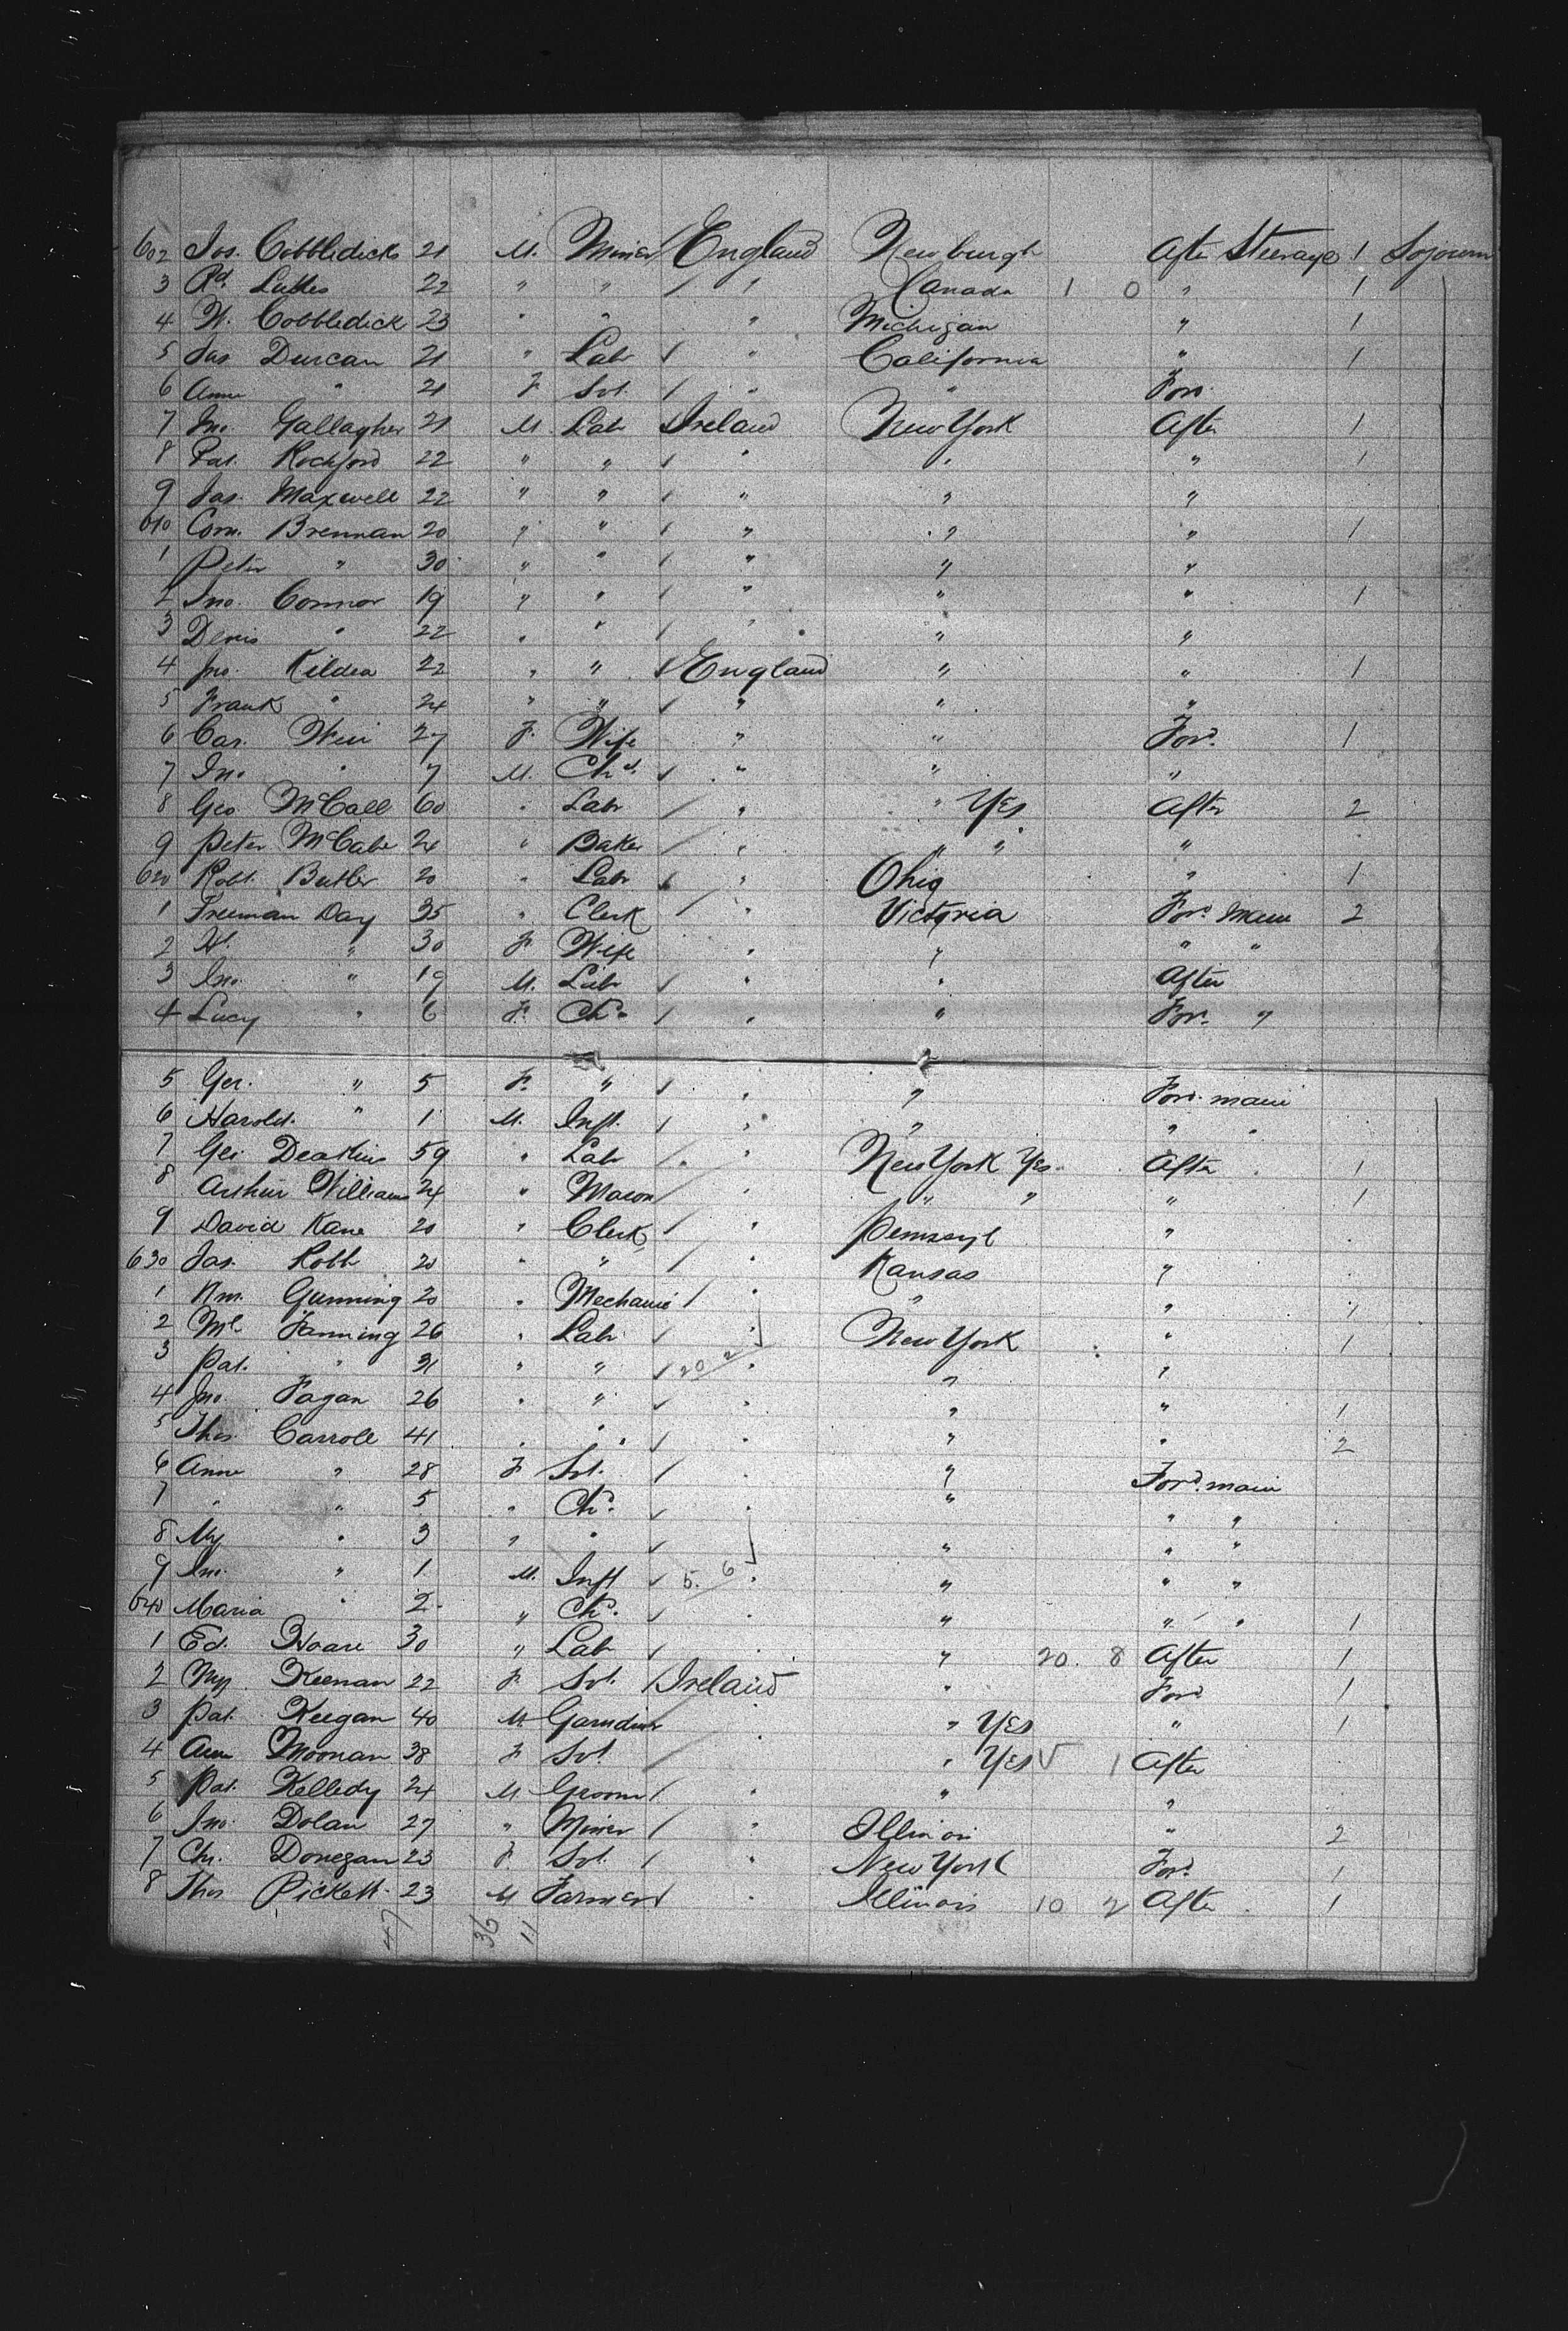 602 Jos. Cobbledicks 21 M. Miner England Newburgh After Steerage 1 Sojourn
3 Rd. 22 " " " Canada 1 0 " 1
4 W. Cobbledick 23 " " " Michigan " 1
5 Jas Durcan 21 " Labr " California " 1
6 Anne " 21 F Svt. " " Ford
7 Jno. Gallagher 21 M. Labr Ireland New York After 1
8 Pat. Rochford 22 " " " " " 1
9 Jas. Maxwell 22 " " " " "
610 Corn. Brennan 20 " " " " " 1
1 Peter " 30 " " " " "
2 Jno. Connor 19 " " " " " 1
3 Denis " 22 " " " " "
4 Jno. Kildea 22 " " England " " 1
5 Frank " 24 " " " " "
6 Car. Weir 27 F. Wife " " Ford. 1
7 Jno " 7 M. Chd. " " "
8 Geo McCall 60 " Labr " " Yes After 2
9 Peter McCabe 24 " Baker " " " "
620 Robt. Butler 20 " Labr " Ohio " 1
1 Freeman Day 35 " Clerk " Victoria Ford. Main 2
2 " 30 F Wife " " " "
3 Jno. " 19 M. Labr " " After
4 Lucy " 6 F. Chd. " " Ford. "
5 Ger. " 5 F. " " " Ford. main
6 Harold. " 1 M. Inft. " " " "
7 Geo. Deakins 59 " Labr " New York Yes After 1
8 Arthur Williams 24 " Mason " " " " 1
9 David Kane 20 " Clerk " Pennsyl "
630 Jas. Robb 20 " " " Kansas "
1 Wm. Gunning 20 " Mechanic " " " 1
2 Ml Fanning 26 " Labr " New York " 1
3 Pat. " 31 " " 20 2 " " "
4 Jno. Fagan 26 " " " " " 1
5 Thos. Carroll 41 " " " " " 2
6 Anne " 28 F Svt. " Ford. main
7 " " 5 " Chd. " " " "
8 My " 3 " " " " " "
9 Jno. " 1 M. Inft 5. 6 " " " "
640 Maria " 2 " Chd. " " " " 1
1 Ed. Hoare 30 " Labr " " 20 8 After 1
2 Keenan 22 F Svt. Ireland " Ford 1
3 Pat. Keegan 40 M Garndiner " " Yes " 1
4 Ann Noonan 38 F Svt. " Yes 1 After
5 Pat. Kelledy 24 M Groom " " "
6 Jno. Dolan 27 " Miner " Illinois " 2
7 Chr. Donegan 23 F. Svt. " New York Ford. 1
8 Thos Pickett 23 M Farmer " Illinois 10 2 After 1
47 36 11